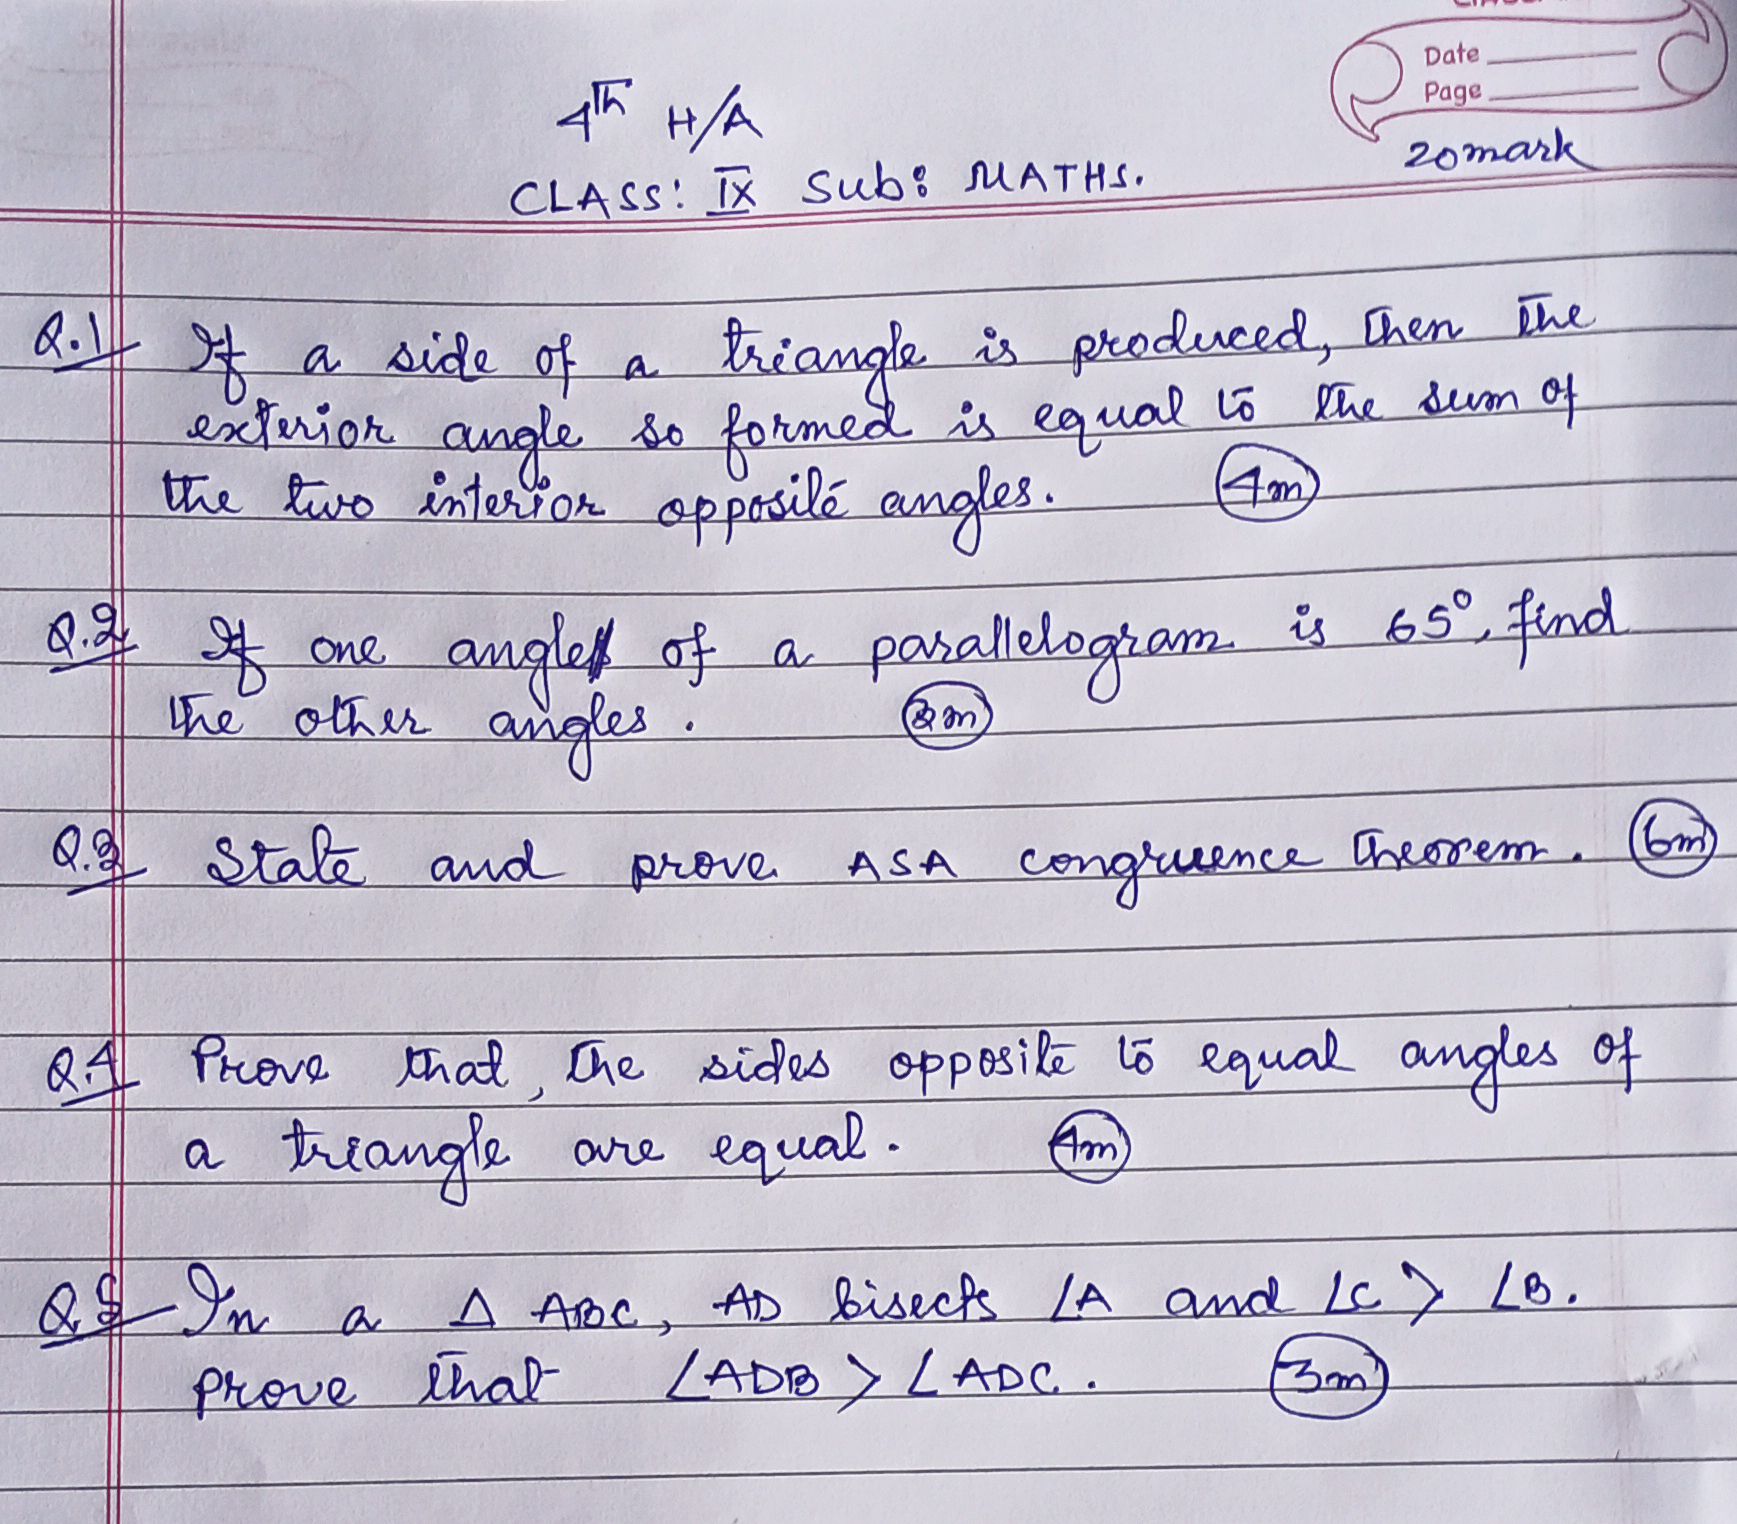 Date
Page
20mark
4Th H/A
CLASS: IX Sub: MATHS.
Q.1 If a side of a triangle is produced, then the
exterior angle so formed is equal to the sum of
the two interior opposite angles. 4m
Q.2 If one angle of a parallelogram is 65°, find
the other angles. 2m
Q.3 State and prove ASA congruence theorem. 6m
Q.4 Prove that, the sides opposite to equal angles of
a triangle are equal. 4m
Q5 In a Δ ABC, AD bisects ∠A and ∠C > ∠B.
prove that ∠ADB > ∠ADC. 3m